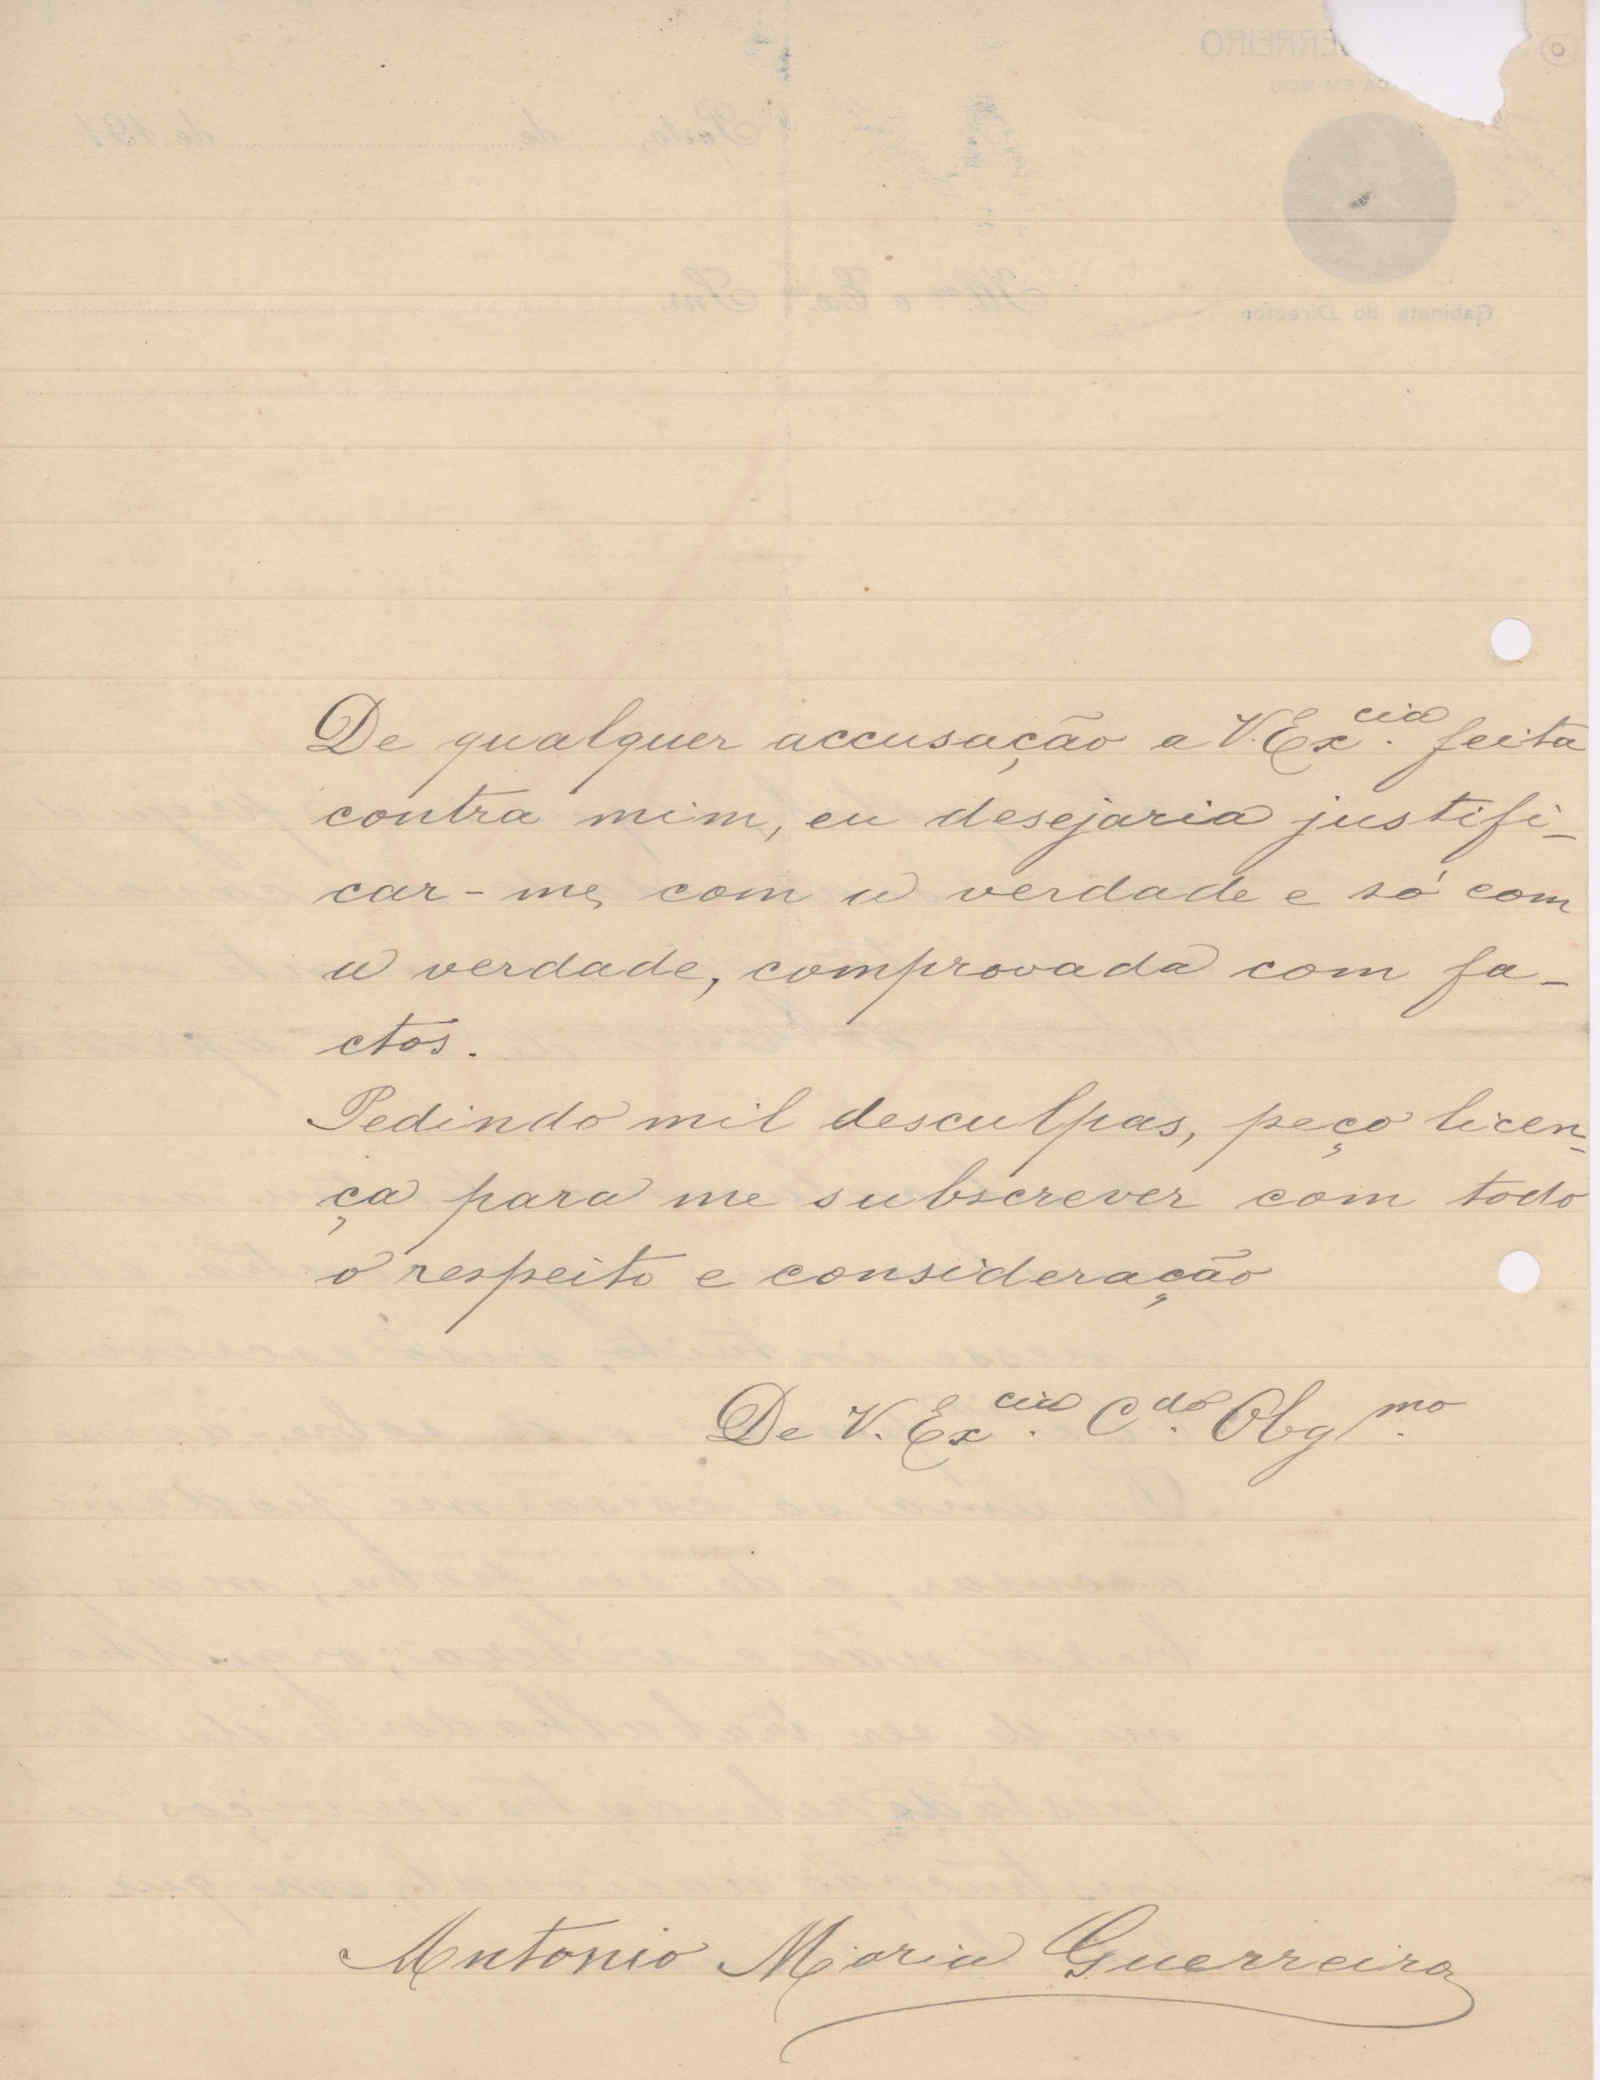 De qualquer accusação a V. Ex.cia feita
contra mim, eu desejaria justifi-
car-me, com a verdade e só com
a verdade, comprovada com fa-
ctos.
Pedindo mil desculpas, peço licen-
ça para me subscrever com todo
o respeito e consideração
De V. Ex.cia C.do Obg.mo
Antonio Maria Guerreiro